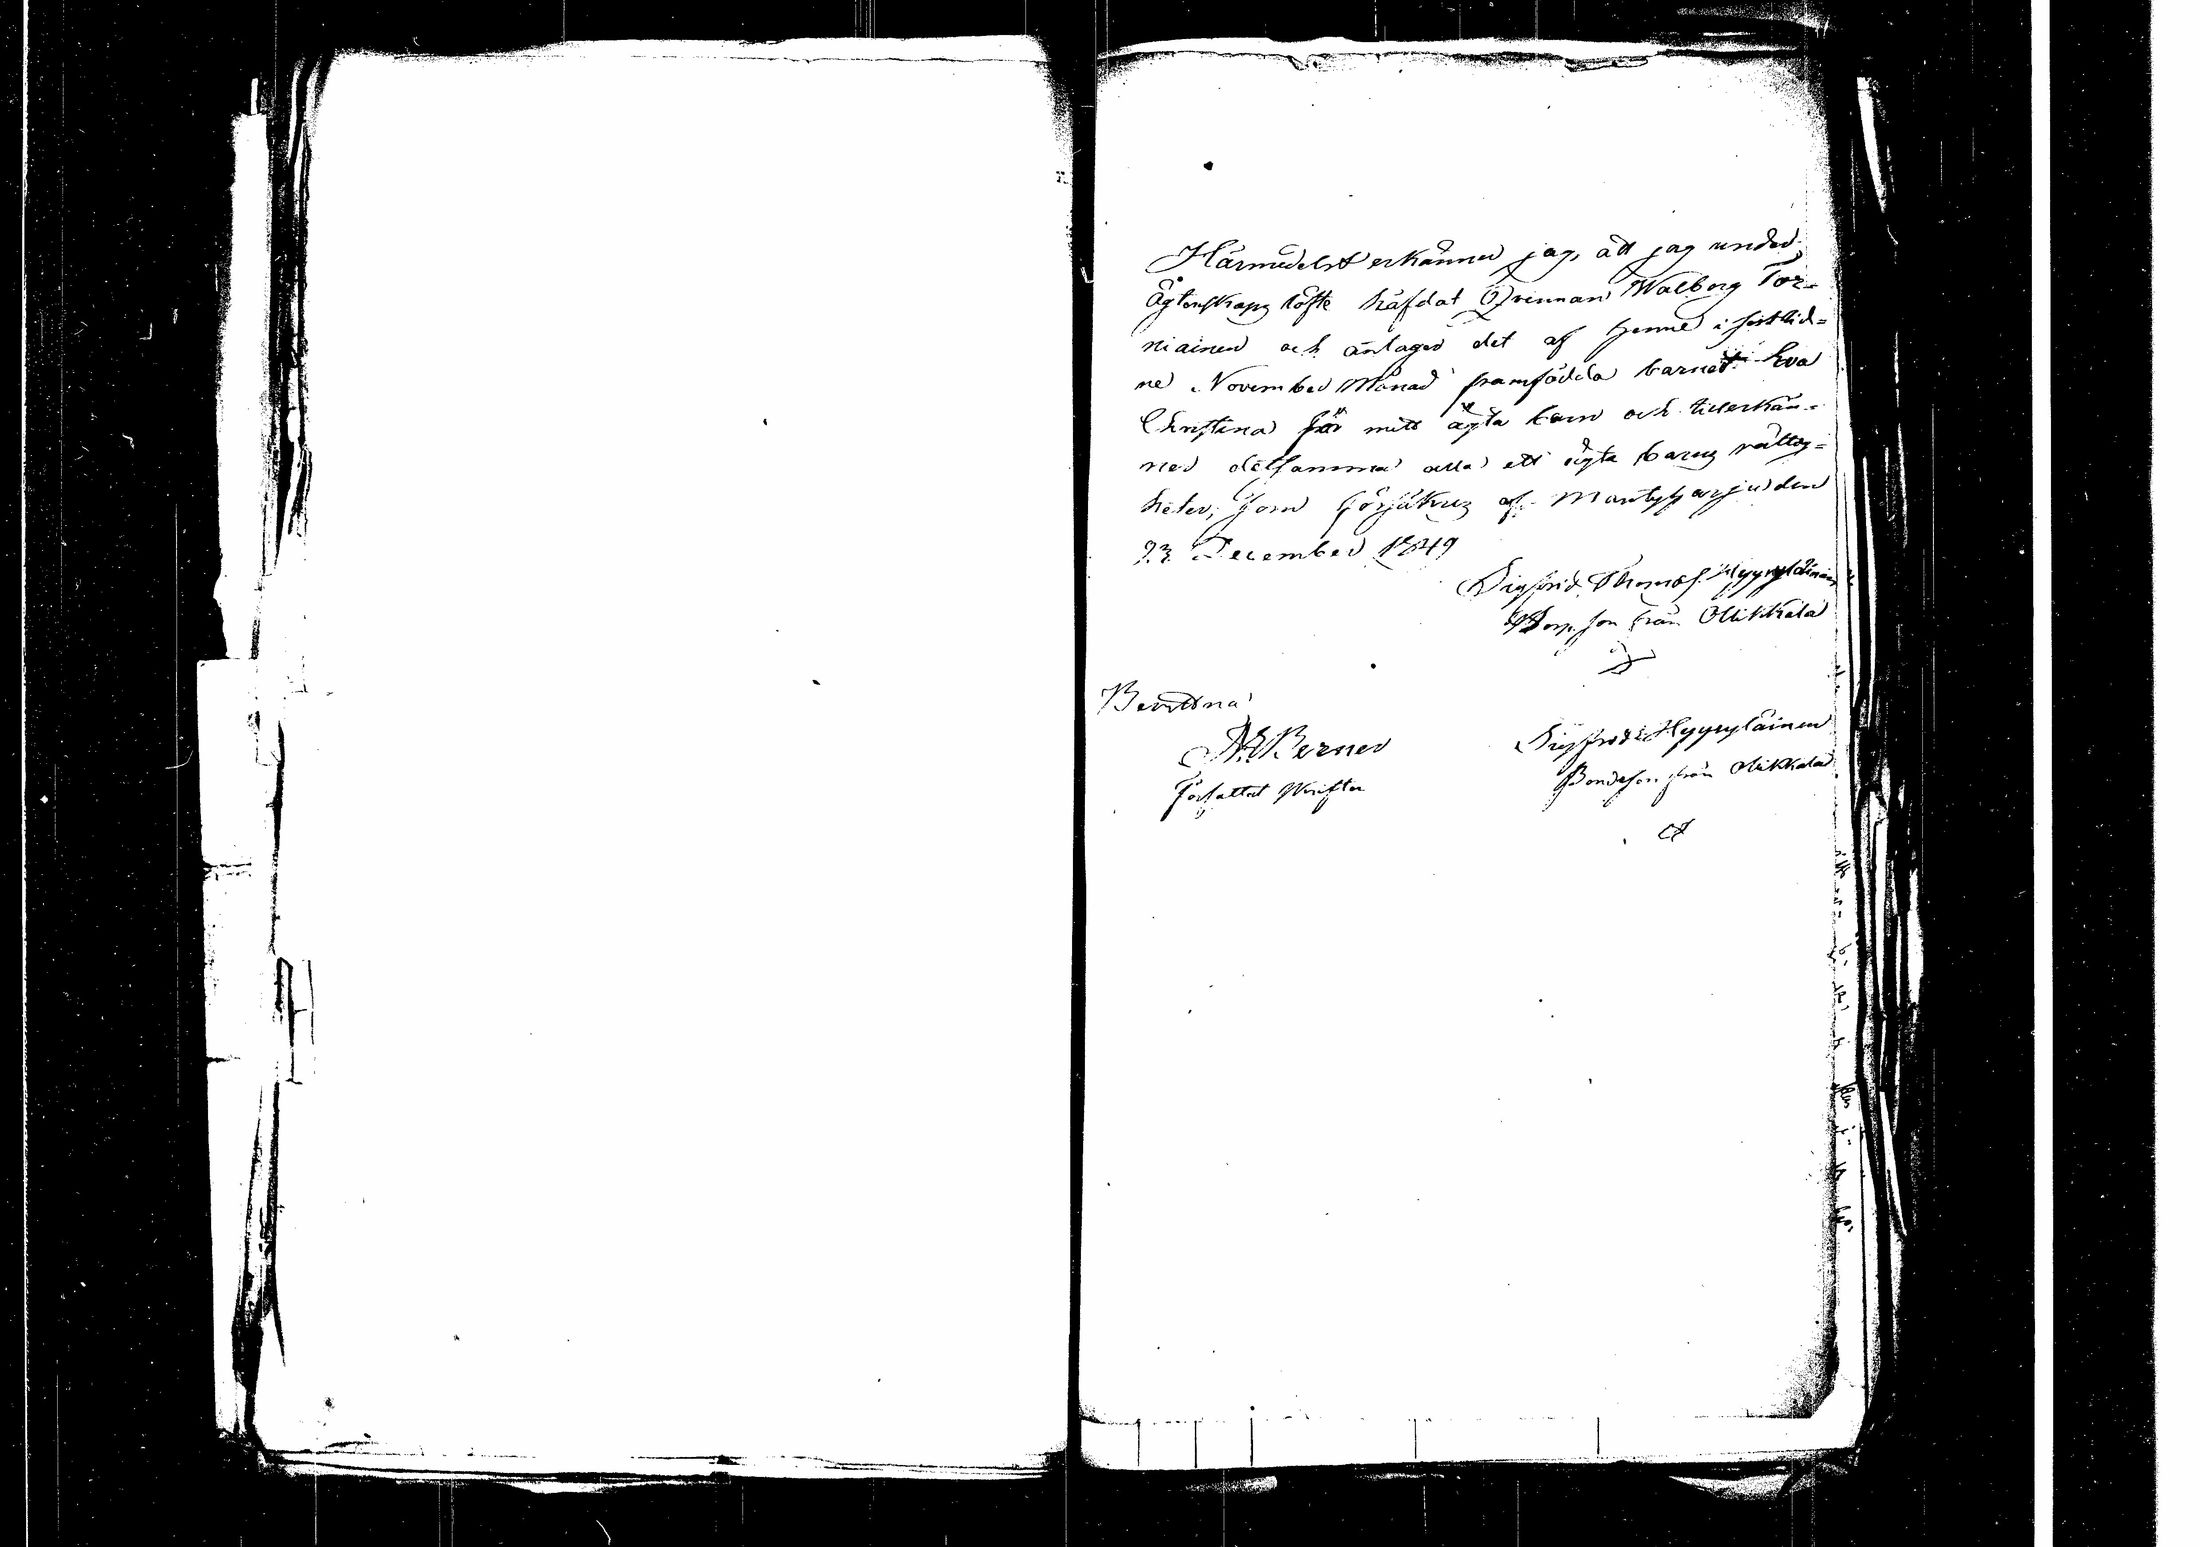 Härmedelst erkänner jag, att jag under
Ägtenskaps löfte häfdat Qvinnan Walborg Tor-
niainen och antager det af henne i sistlid-
ne November Månad framfödda barnet Eva
Christina för mitt ägta barn och tillerkän-
ner detsamma alla ett ägta barns rättig-
heter, som försäkras af Mantyharju den
23 December 1849
Sigfrid Thomas. Hyyryläinen
Torp. son från Ollikkala
Bevittna
A. E. Berner
författat skriften
Sigfrid Hyyryläinen
Bondeson från Olikkala